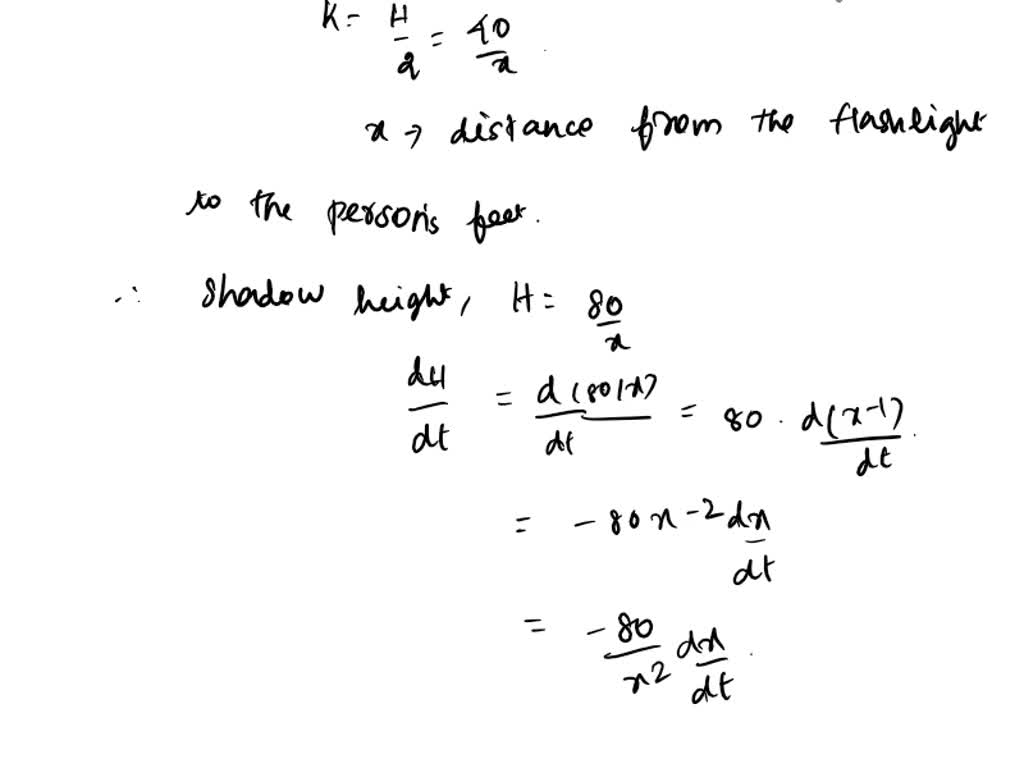 K = H/2 = 40/x
x → distance from the flashlight
to the person's feet.
∴ Shadow height, H = 80/x
dH/dt = d(80/x)/dt = 80 · d(x-1)/dt.
= -80x-2 dx/dt
= -80/x2 dx/dt.